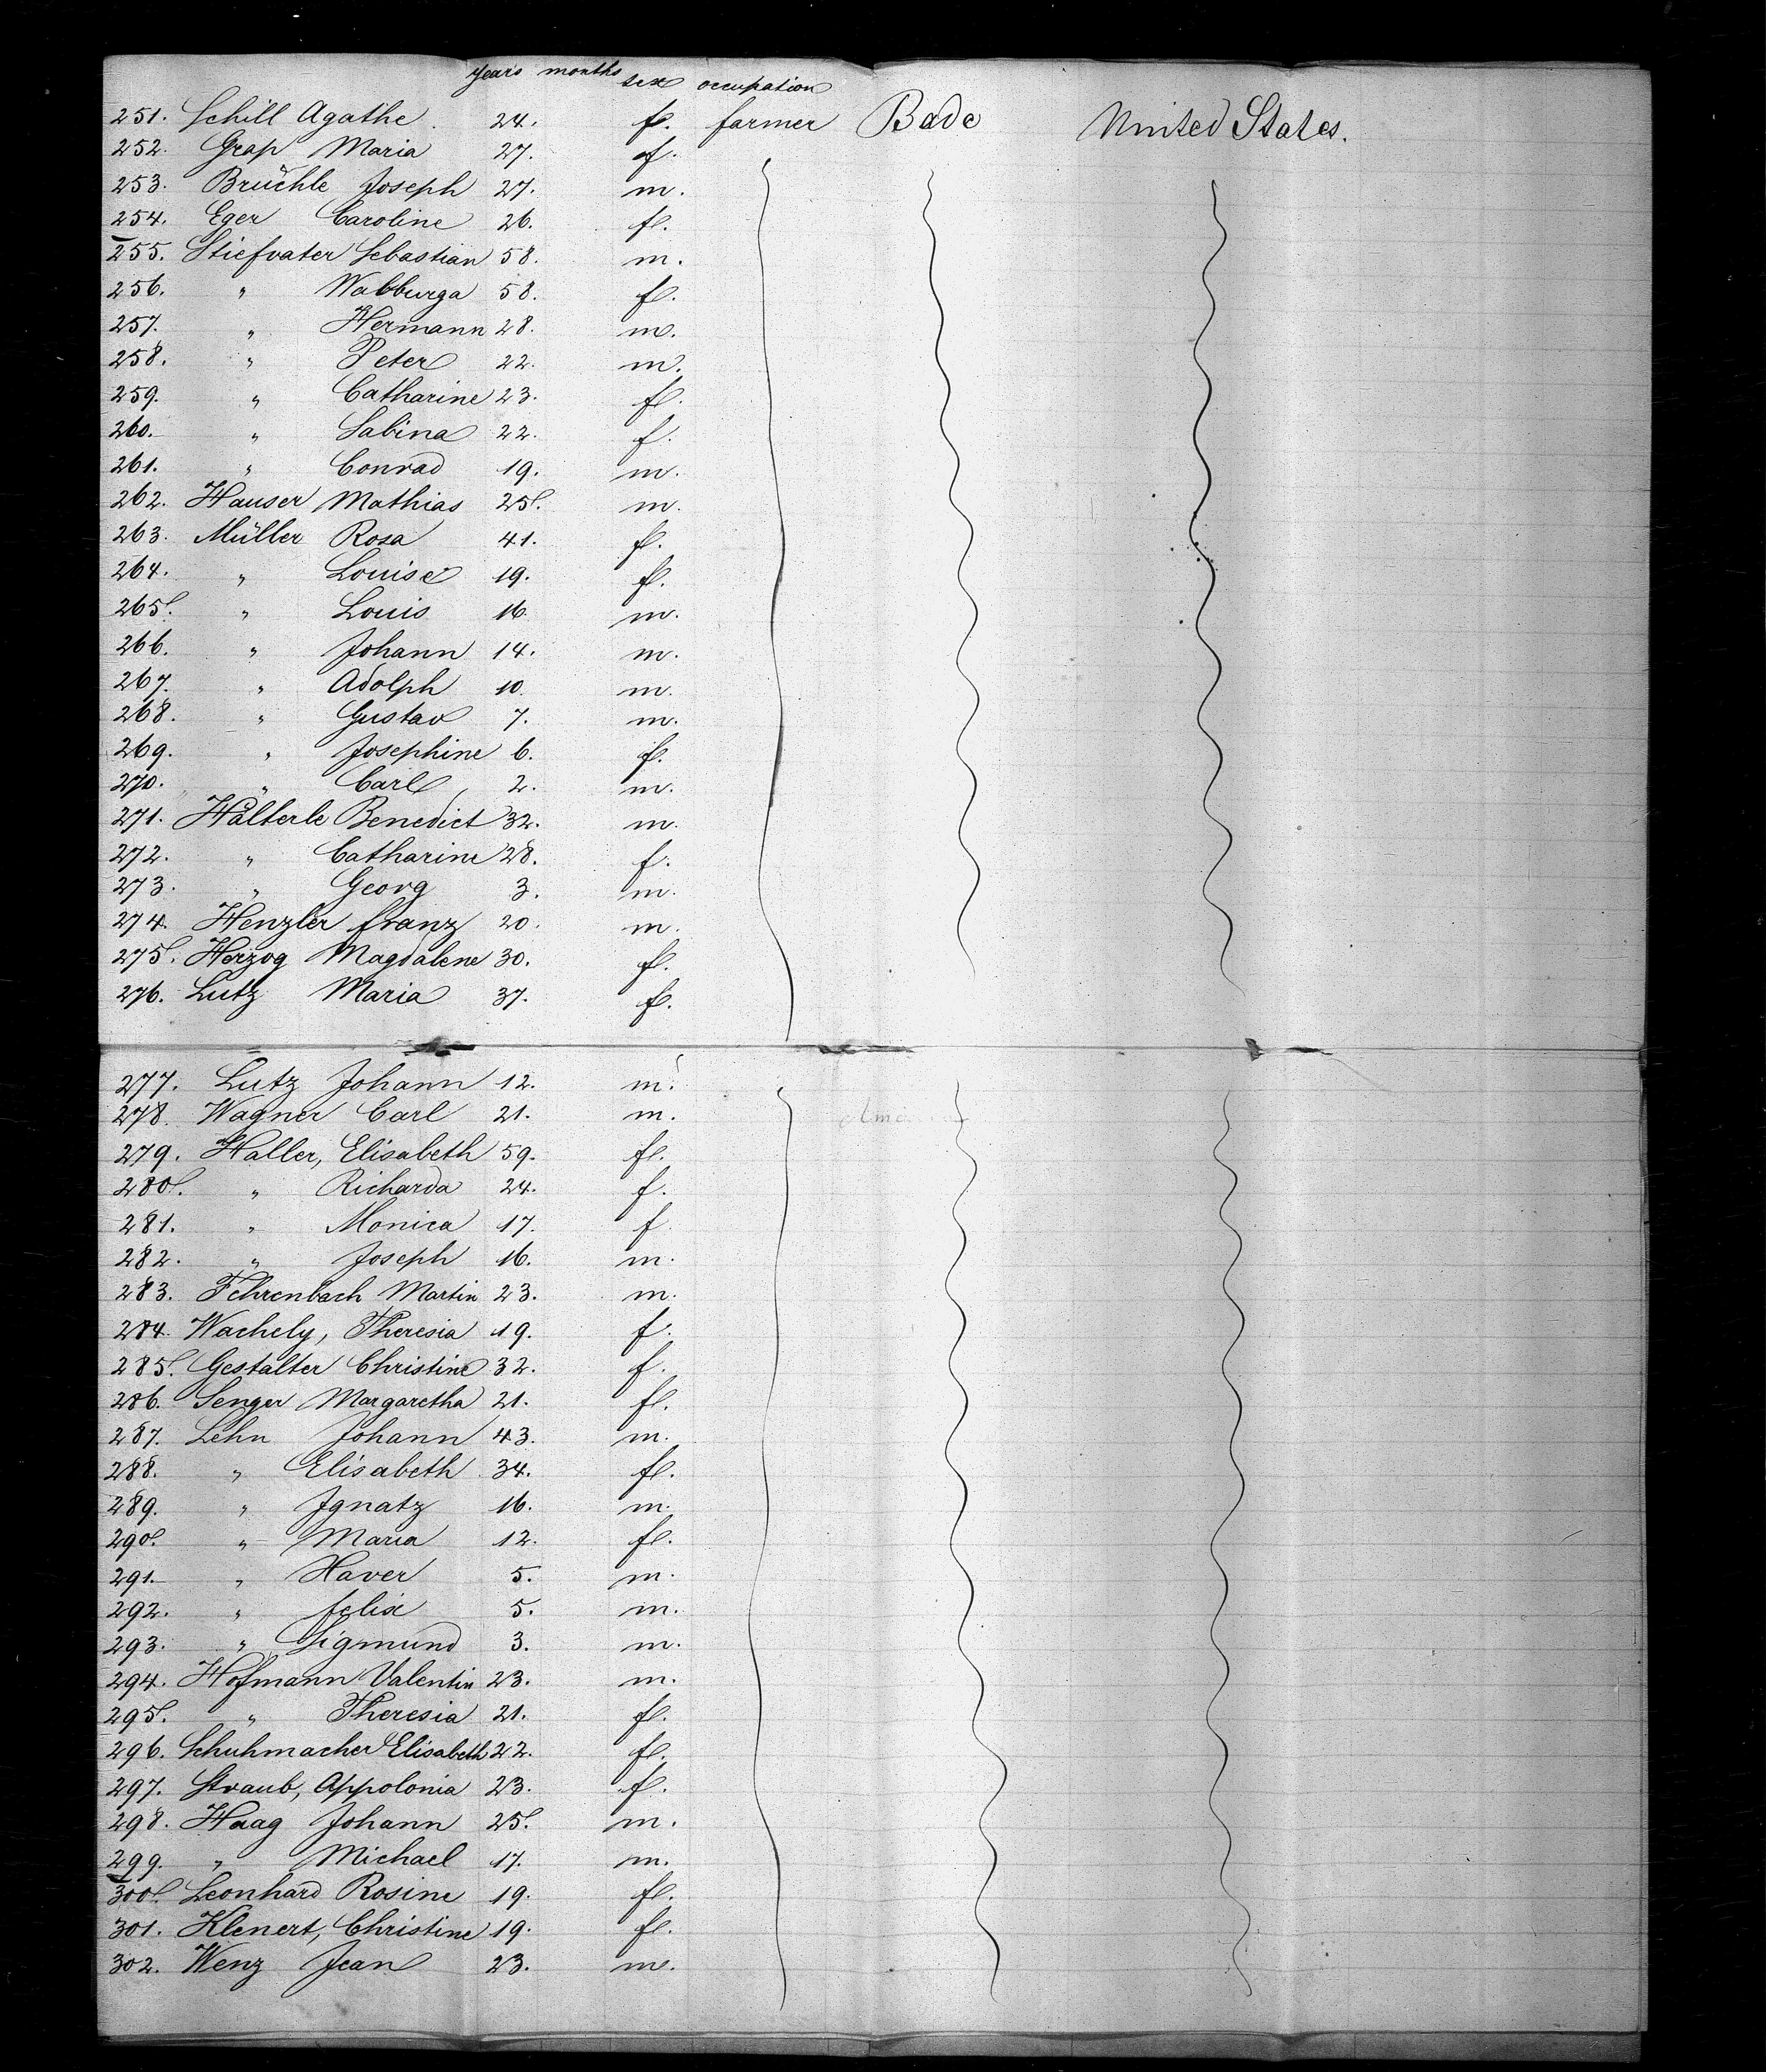 years months sex occupation
251. Schill Agathe 24. f. farmer Bade United States.
252. Grap Maria 27. f.
253. Brüchle Joseph 27. m.
254. Eger Caroline 26. f.
255. Stiefvater Sebastian 58. m.
256. " Walburga 58. f.
257. " Hermann 28. m.
258. " Peter 22. m.
259. " Catharine 23. f.
260. " Sabina 22. f.
261. " Conrad 19. m.
262. Hauser Mathias 25. m.
263. Müller Rosa 41. f.
264. " Louise 19. f.
265. " Louis 16. m.
266. " Johann 14. m.
267. " Adolph 10. m.
268. " Gustav 7. m.
269. " Josephine 6. f.
270. " Carl 2. m.
271. Hälterle Benedict 32. m.
272. " Catharine 28. f.
273. " Georg 3. m.
274. Henzler Franz 20. m.
275. Herzog Magdalene 30. f.
276. Lutz Maria 37. f.
277. Lutz Johann 12. m.
278. Wagner Carl 21. m.
279. Haller, Elisabeth 59. f.
280. " Richarda 24. f.
281. " Monica 17. f
282. " Joseph 16. m.
283. Fehrenbach Martin 23. m.
284. Wachely, Theresia 19. f.
285. Gestalter Christine 32. f.
286. Senger Margaretha 21. f.
287. Lehn Johann 43. m.
288. " Elisabeth 34. f.
289. " Ignatz 16. m.
290. " Maria 12. f.
291. " Xaver 5. m.
292. " Felix 5. m.
293. " Sigmund 3. m.
294. Hofmann Valentin 23. m.
295. " Theresia 21. f.
296. Schuhmacher Elisabeth 22. f.
297. Straub, Appolonia 23. f.
298. Haag Johann 25. m.
299. " Michael 17. m.
300. Leonhard Rosine 19. f.
301. Klenert, Christine 19. f.
302. Wenz Jean 23. m.